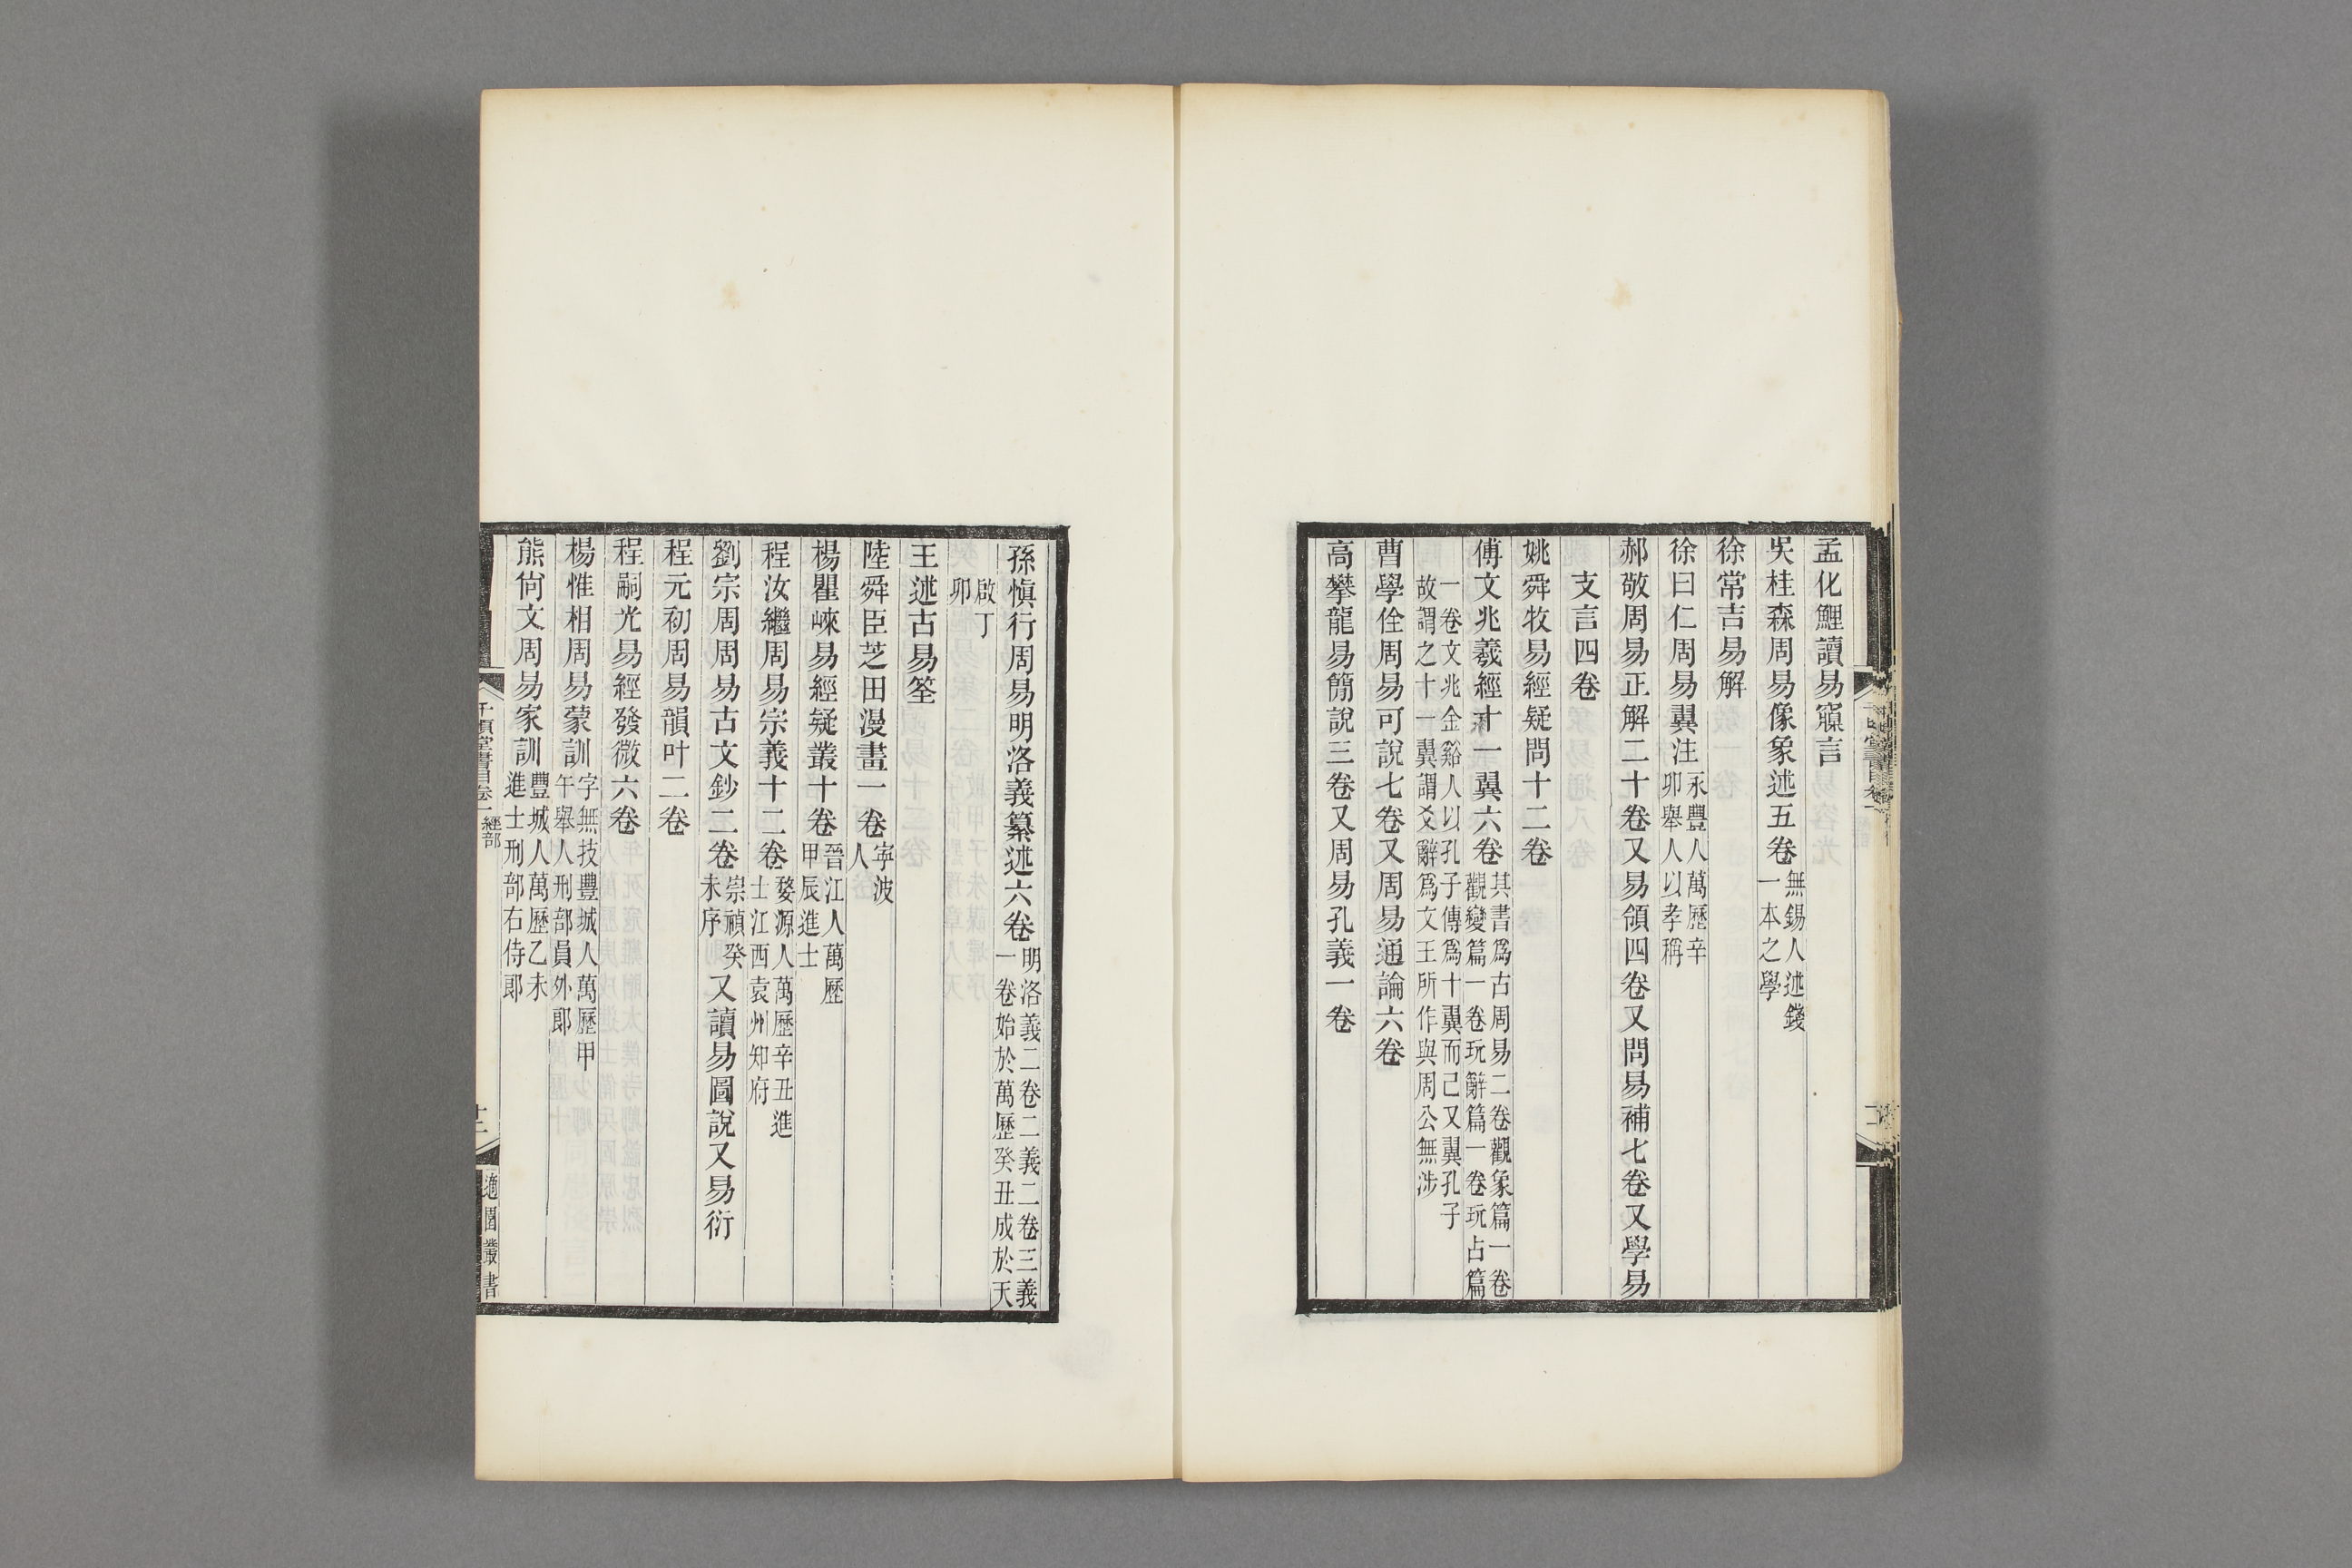 孟化鯉讀易寱言
吳桂森周易像象述五卷無錫人述錢一本之學
徐常吉易解
徐曰仁周易翼注永豐人萬歷辛卯舉人以孝稱
郝敬周易正解二十卷又易領四卷又問易補七卷又學易
支言四卷
姚舜牧易經疑問十二卷
傅文兆羲經十一翼六卷其書爲古周易二卷觀象篇一卷觀變篇一卷玩辭篇一卷玩占篇
一卷文兆金谿人以孔子傳爲十翼而己又翼孔子故謂之十一翼謂爻辭爲文王所作與周公無涉
曹學佺周易可說七卷又周易通論六卷
高攀龍易簡說三卷又周易孔義一卷
孫愼行周易明洛義纂述六卷明洛義二卷二義二卷三義一卷始於萬歷癸丑成於天
啟丁卯
王述古易筌
陸舜臣芝田漫畫一卷寧波人
楊瞿崍易經疑叢十卷晉江人萬歷甲辰進士
程汝繼周易宗義十二卷婺源人萬歷辛丑進士江西袁州知府
劉宗周周易古文鈔二卷崇禎癸未序又讀易圖說又易衍
程元初周易韻叶二卷
程嗣光易經發微六卷
楊惟相周易蒙訓字無技豐城人萬歷甲午舉人刑部員外郎
熊尙文周易家訓豐城人萬歷乙未進士刑部右侍郎
千頃堂書目卷一 經部
十二
適園叢書